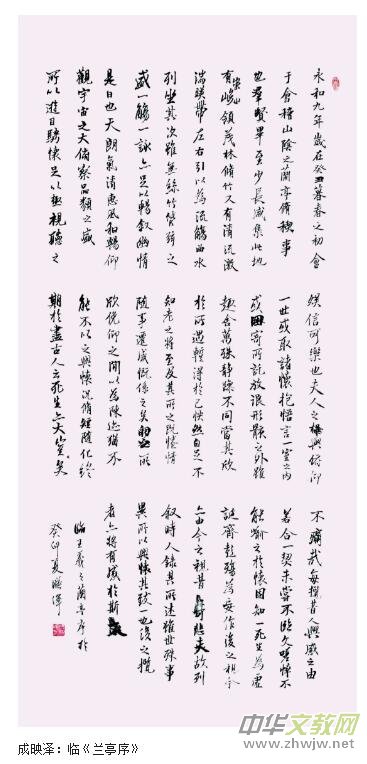 永和九年歲在癸丑暮春之初會
于會稽山陰之蘭亭脩稧事
也羣賢畢至少長咸集此地
有崇山峻領茂林脩竹又有清流激
湍暎帶左右引以為流觴曲水
列坐其次雖無絲竹管弦之
盛一觴一詠亦足以暢敘幽情
是日也天朗氣清惠風和暢仰
觀宇宙之大俯察品類之盛
所以遊目騁懷足以極視聽之
娛信可樂也夫人之相與俯仰
一世或取諸懷抱悟言一室之內
或因寄所託放浪形骸之外雖
趣舍萬殊靜躁不同當其欣
於所遇暫得於己怏然自足不
知老之將至及其所之既惓情
隨事遷感慨係之矣向之所
欣俛仰之閒以為陳迹猶不
能不以之興懷況脩短隨化終
期於盡古人云死生亦大矣
不痛哉每攬昔人興感之由
若合一契未嘗不臨文嗟悼不
能喻之於懷固知一死生為虛
誕齊彭殤為妄作後之視今
亦由今之視昔悲夫故列
敘時人錄其所述雖世殊事
異所以興懷其致一也後之攬
者亦將有感於斯
臨王羲之蘭亭序於
癸卯夏
成映泽：临《兰亭序》
中华文教网
www.zhwjw.net